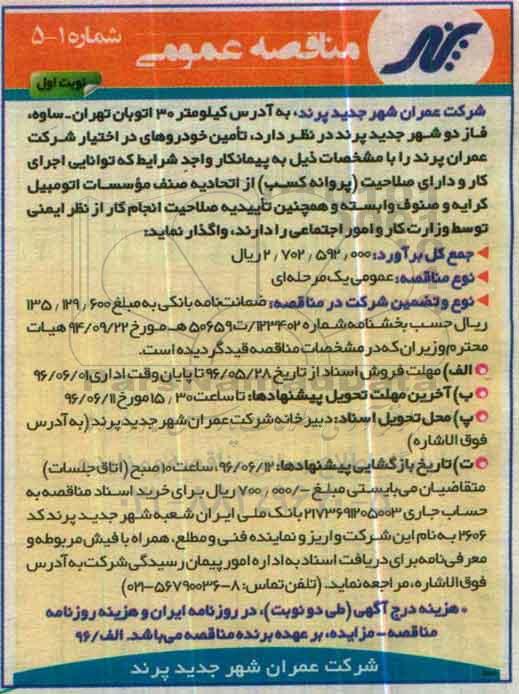 مناقصه عمومی
شماره ۱-۵
پرند
نوبت اول
شرکت عمران شهر جدید پرند، به آدرس کیلومتر ۳۰ اتوبان تهران-ساوه،
فاز دو شهر جدید پرند در نظر دارد، تأمین خودروهای در اختیار شرکت
عمران پرند را با مشخصات ذیل به پیمانکار واجد شرایط که توانایی اجرای
کار و دارای صلاحیت (پروانه کسب) از اتحادیه صنف مؤسسات اتومبیل
کرایه و صنوف وابسته و همچنین تأییدیه صلاحیت انجام کار از نظر ایمنی
توسط وزارت کار و امور اجتماعی را دارند، واگذار نماید:
جمع کل برآورد: ۲٫۷۰۲٫۵۹۲٫۰۰۰ ریال
نوع مناقصه: عمومی یک مرحله‌ای
نوع و تضمین شرکت در مناقصه: ضمانت‌نامه بانکی به مبلغ ۱۳۵٫۱۲۹٫۶۰۰
ریال حسب بخشنامه شماره ۱۲۳۴۰۲/ت۵۰۶۵۹هـ مورخ ۹۴/۰۹/۲۲ هیات
محترم وزیران که در مشخصات مناقصه قید گردیده است.
الف) مهلت فروش اسناد از تاریخ ۹۶/۰۵/۲۸ تا پایان وقت اداری ۹۶/۰۶/۰۱
ب) آخرین مهلت تحویل پیشنهادها: تا ساعت ۱۵٫۳۰ مورخ ۹۶/۰۶/۱۱
پ) محل تحویل اسناد: دبیرخانه شرکت عمران شهر جدید پرند (به آدرس
فوق الاشاره)
ت) تاریخ بازگشایی پیشنهادها: ۹۶/۰۶/۱۲، ساعت ۱۰ صبح (اتاق جلسات)
متقاضیان می‌بایستی مبلغ ۷۰۰/۰۰۰/- ریال برای خرید اسناد مناقصه به
حساب جاری ۲۱۷۳۶۹۱۲۰۵۰۰۳ بانک ملی ایران شعبه شهر جدید پرند کد
۲۶۰۶ به نام این شرکت واریز و نماینده فنی و مطلع، همراه با فیش مربوطه و
معرفی‌نامه برای دریافت اسناد به اداره امور پیمان رسیدگی شرکت به آدرس
فوق الاشاره، مراجعه نماید. (تلفن تماس: ۸-۵۶۷۹۰۰۳۶-۰۲۱)
* هزینه درج آگهی (طی دو نوبت)، در روزنامه ایران و هزینه روزنامه
مناقصه - مزایده، بر عهده برنده مناقصه می‌باشد. الف/۹۶
شرکت عمران شهر جدید پرند